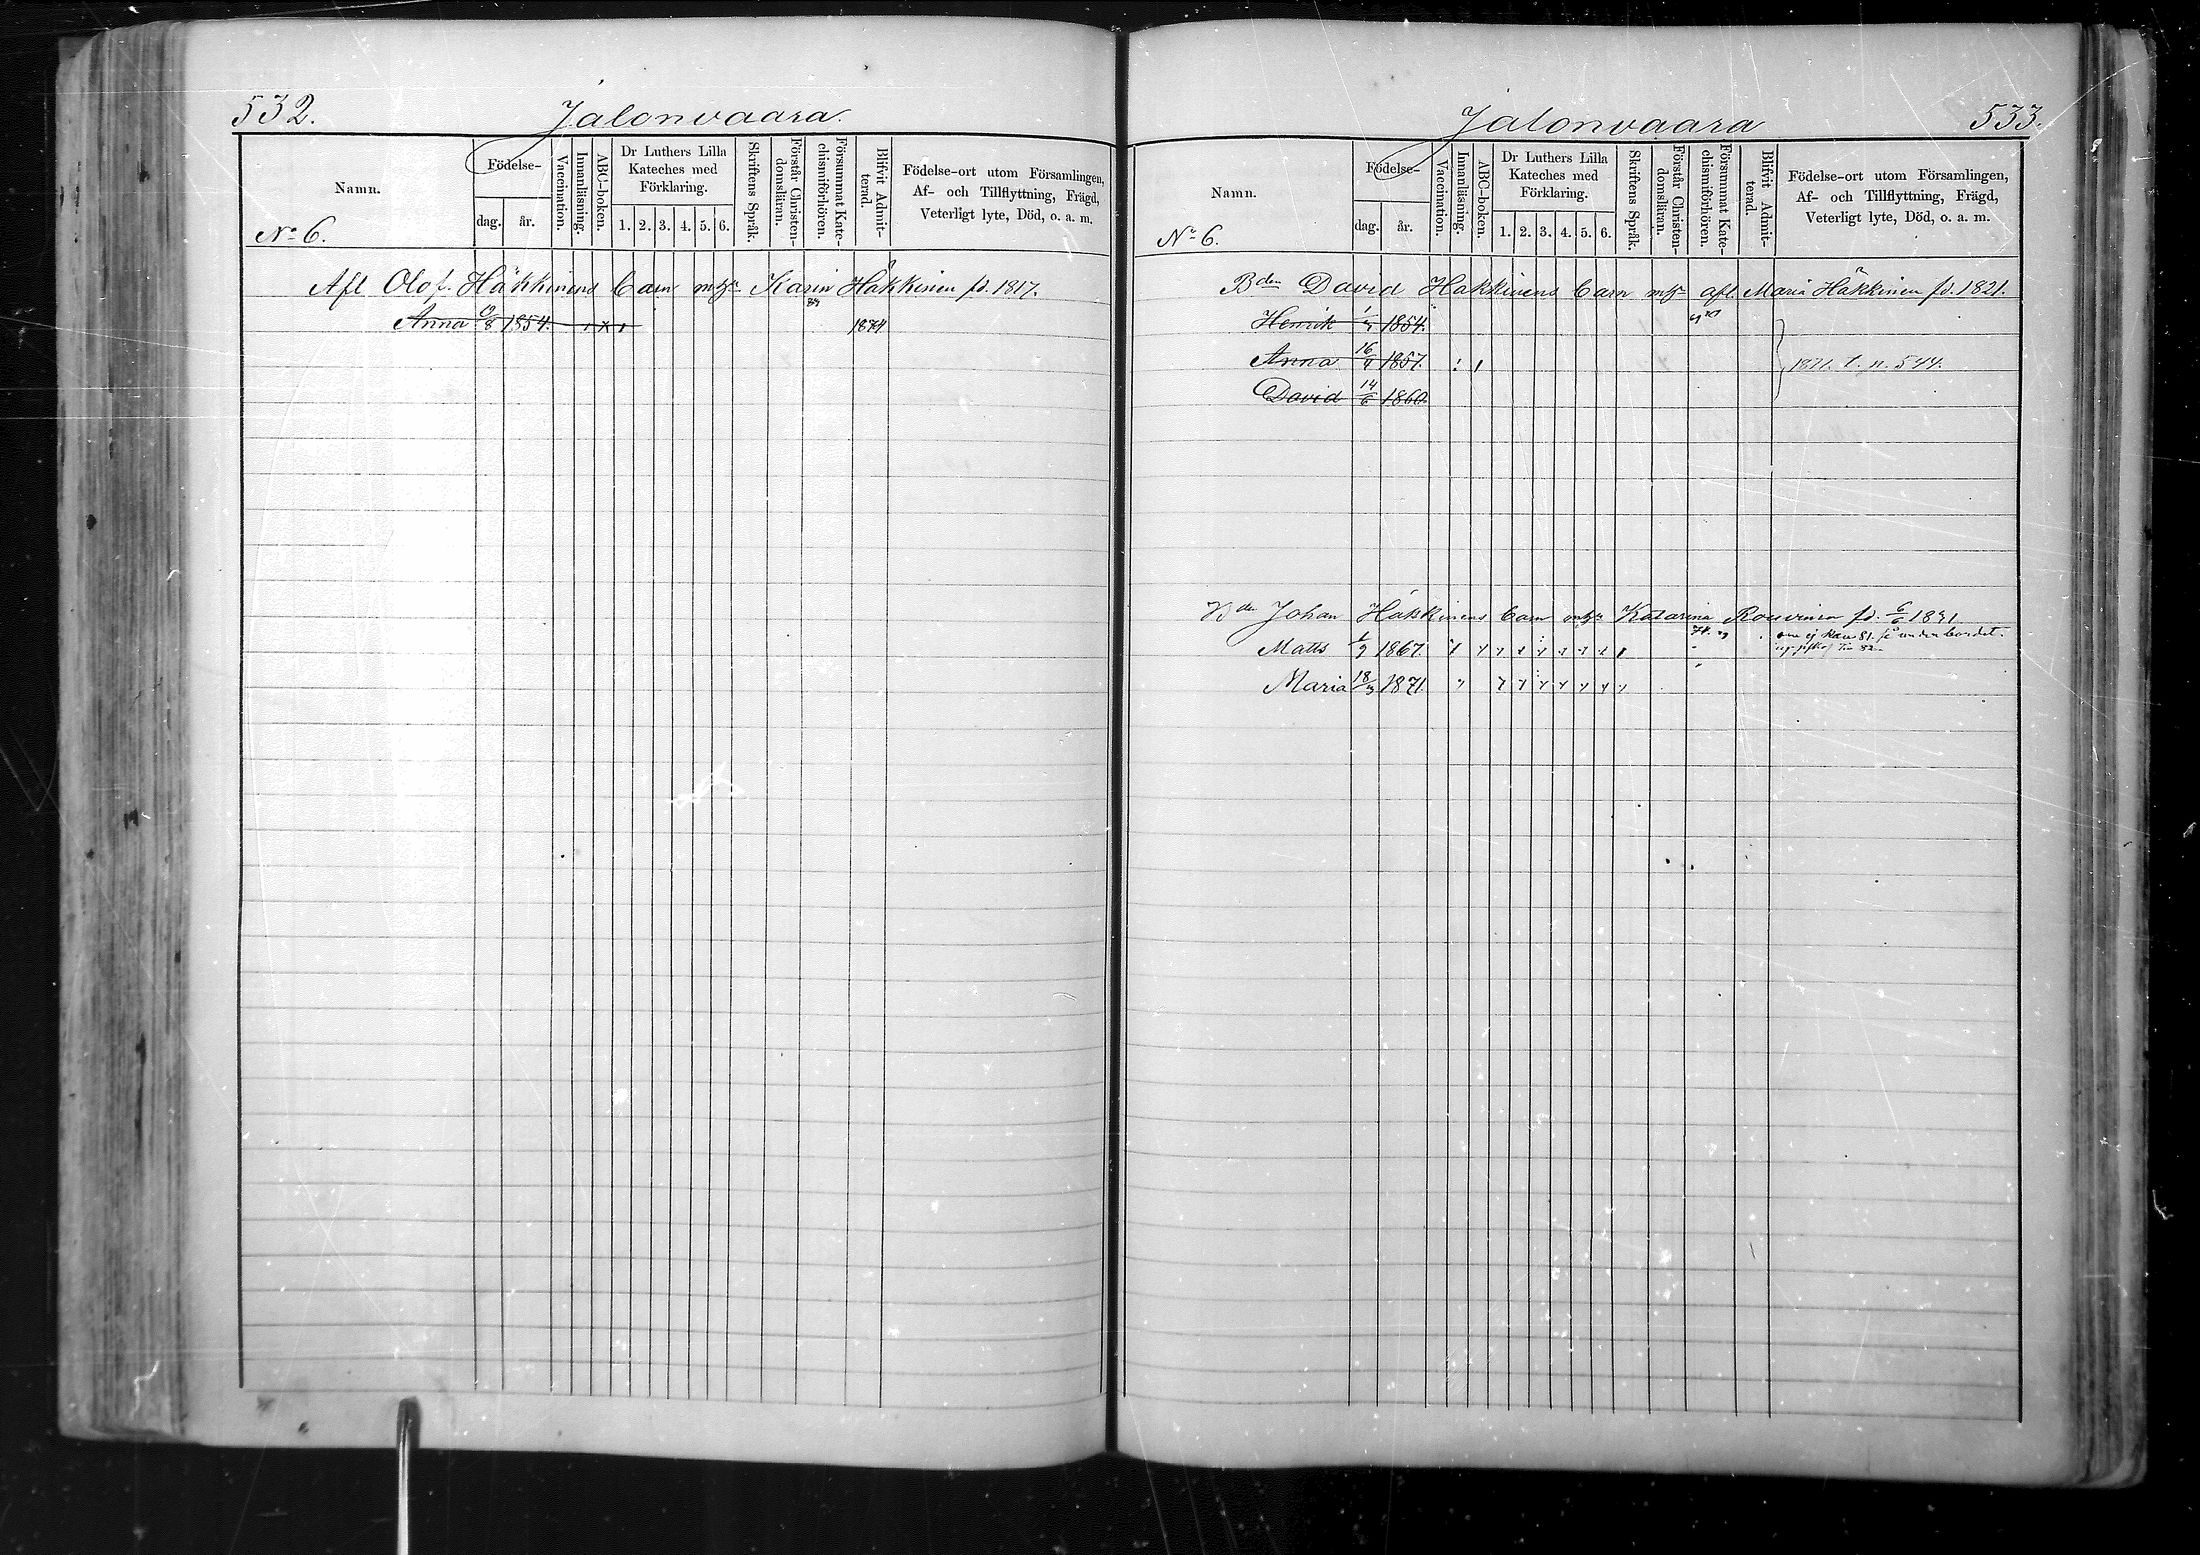 532. Jalonvaara.
Namn. Födelse- dag. år. Vaccination. Innanläsning. ABC-boken. Dr Luthers Lilla Kateches med Förklaring. 1. 2. 3. 4. 5. 6. Skriftens Språk. Förstår Christendomsläran. Försummat Katechismiförhören. Blifvit Admitterad. Födelse-ort utom Församlingen, Af- och Tillflyttning, Frägd, Veterligt lyte, Död, o. a. m.
No 6.
Afl Olof Häkkinens barn Karin Häkkinen fd. 1817.
Anna 1854. 1874
Jalonvaara 533.
Namn. Födelse- dag. år. Vaccination. Innanläsning. ABC-boken. Dr Luthers Lilla Kateches med Förklaring. 1. 2. 3. 4. 5. 6. Skriftens Språk. Förstår Christendomsläran. Försummat Katechismiförhören. Blifvit Admitterad. Födelse-ort utom Församlingen, Af- och Tillflyttning, Frägd, Veterligt lyte, Död, o. a. m.
No 6.
Bden David Häkkinens barn afl. Maria Häkkinen fd. 1821.
Henrik 1854.
Anna 16/4 1857. 1871. t. p. 544.
David 14/6 1860.
Bden Johan Häkkinens barn Katarina Rouvinen fd. 6/6 1831
Matts 1867.
Maria 18/3 1871.